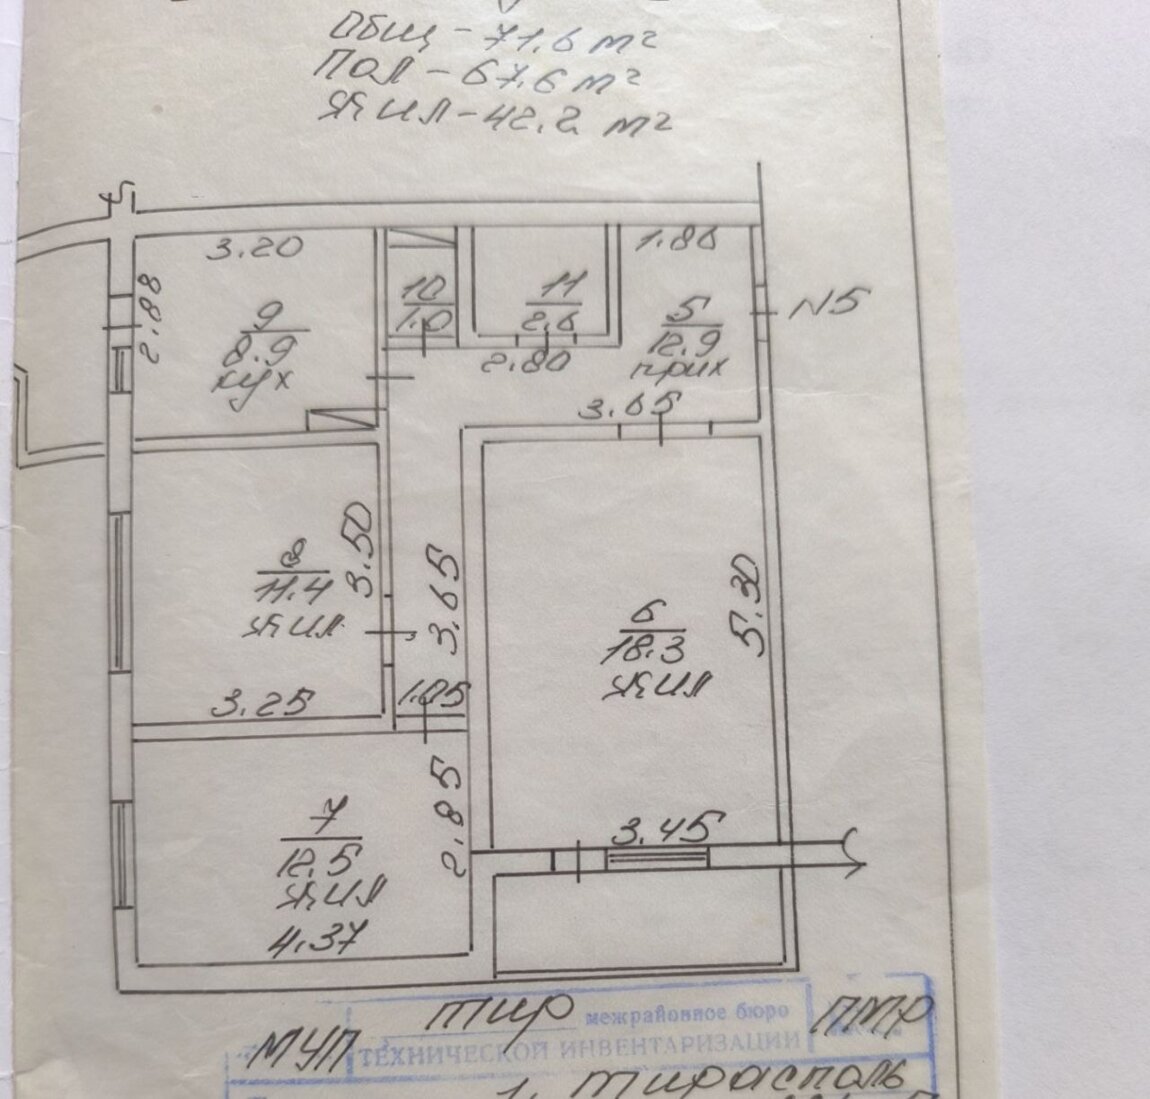 Общ - 71.6 м²
Пол - 67.6 м²
Жил - 42.2 м²
3.20
1.86
2.88
10
1.0
11
2.6
N5
9
8.9
кух
5
12.9
прих
2.80
3.65
3.50
8
11.4
жил
3.65
5.30
6
18.3
жил
3.25
1.05
2.85
3.45
7
12.5
жил
4.37
МУП тир межрайонное бюро ПМР
ТЕХНИЧЕСКОЙ ИНВЕНТАРИЗАЦИИ
Тирасполь